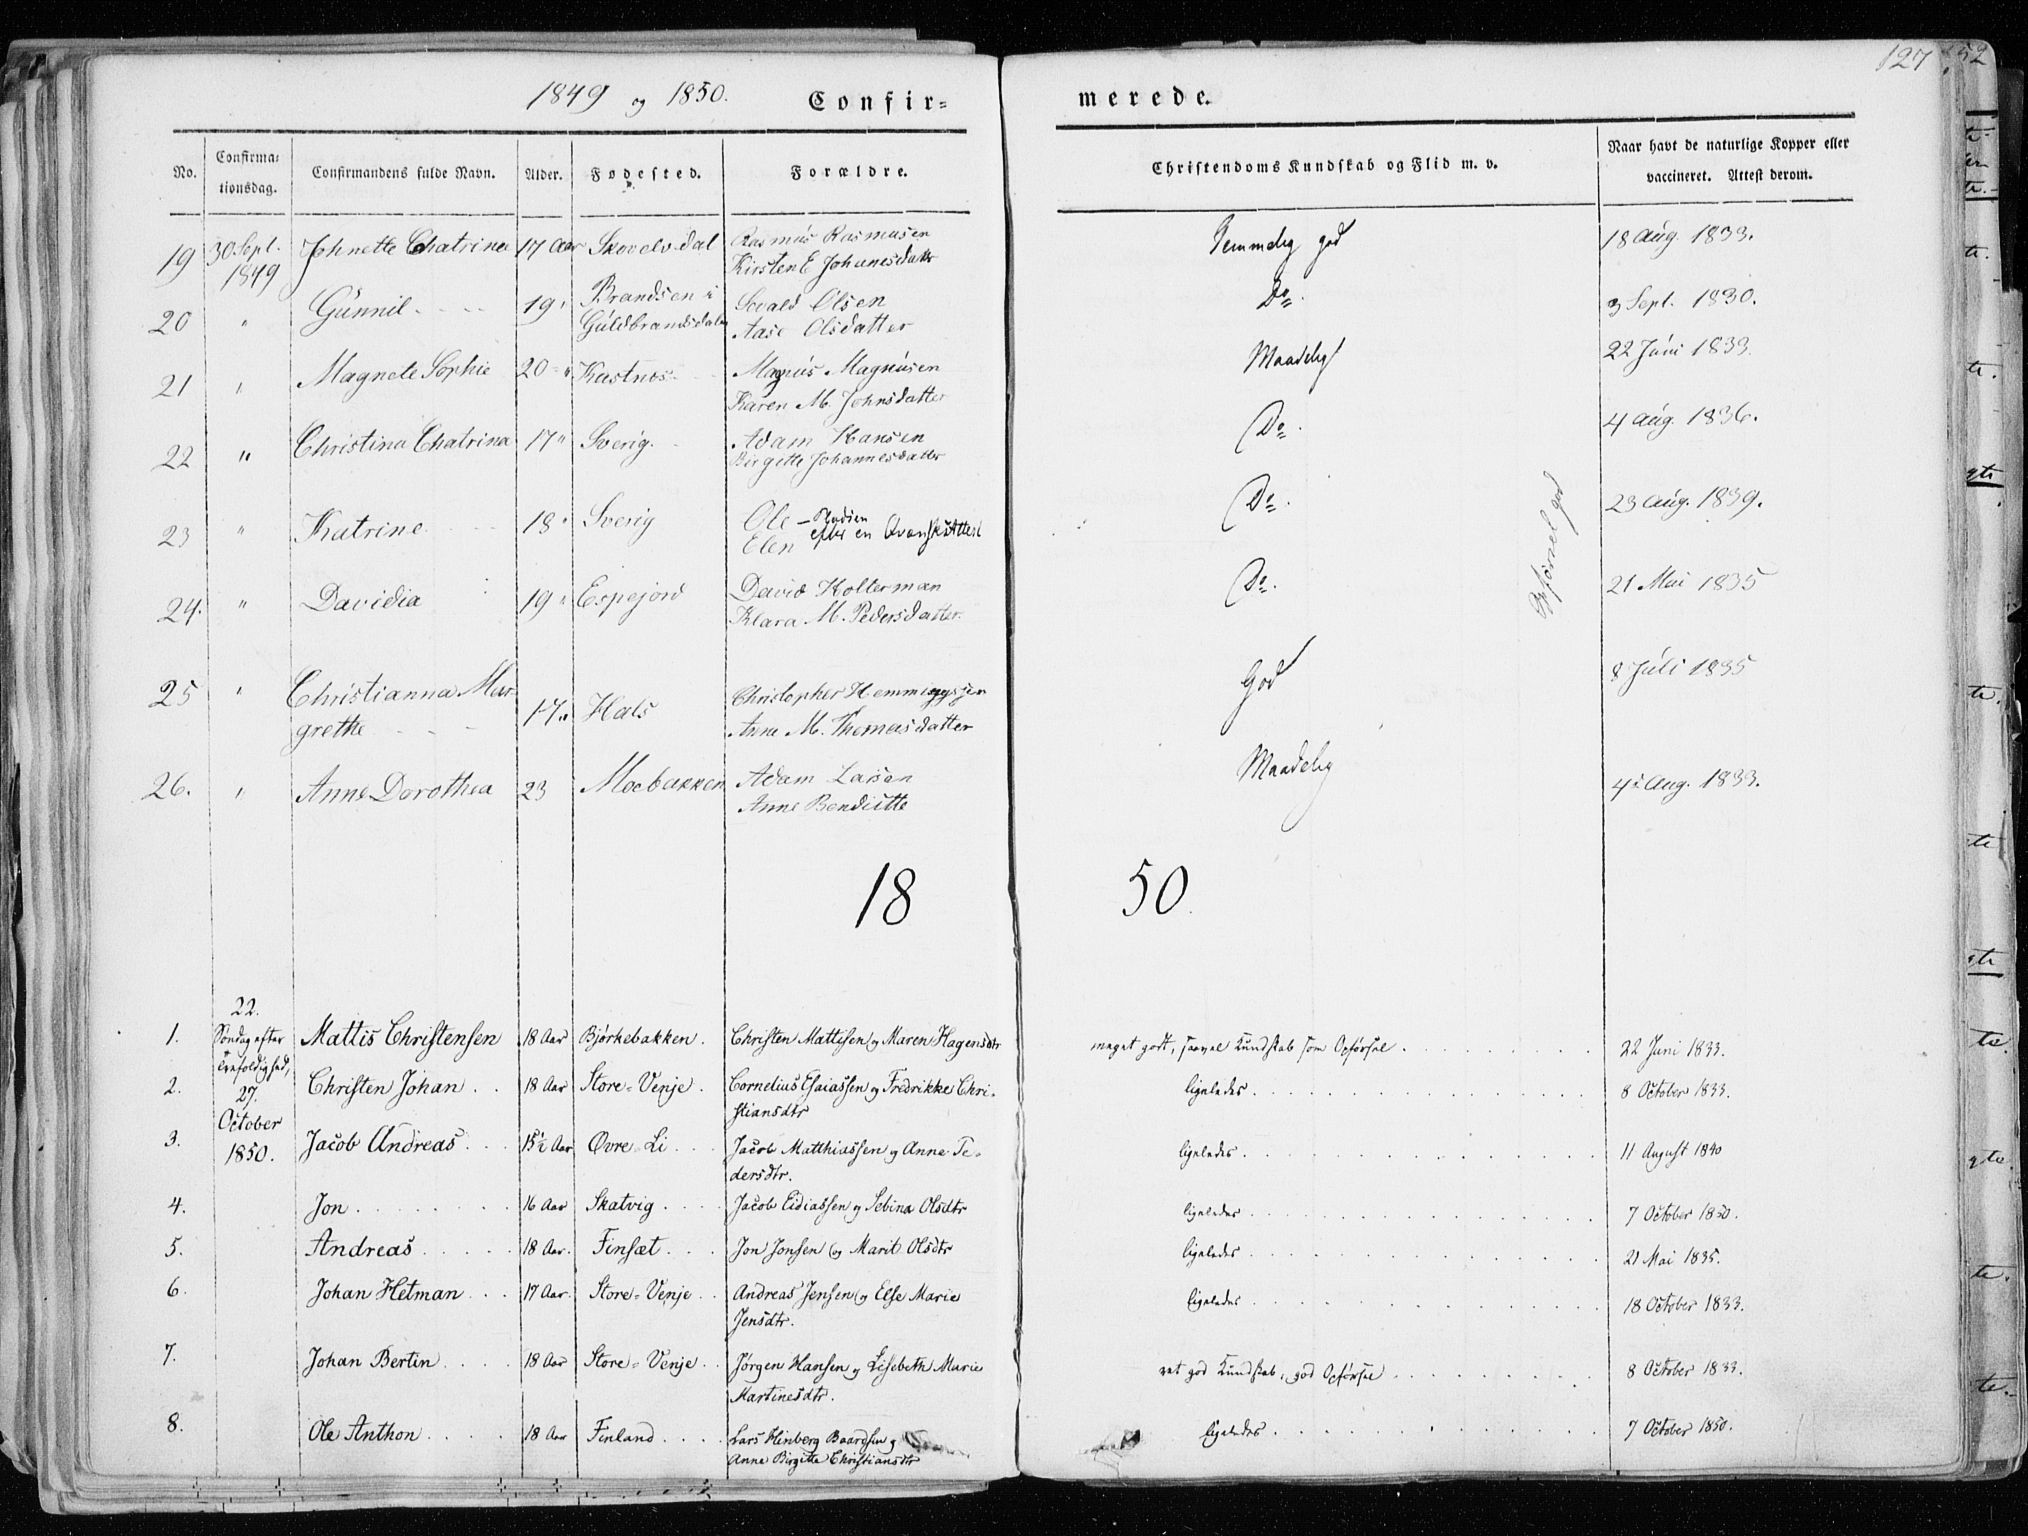 127 52
1849 og 1850. Confir= merede.
No. Confirma= tionsdag. Confirmandens fulde Navn. Alder. Fødested. Forældre. Christendoms Kundskab og Flid m. v. Naar havt de naturlige Kopper eller vaccineret. Attest derom.
19 30 Sept. 1849 Johnette Chatrina 17 Aar Skovelvdal Rasmus Rasmusen Temmelig god 18 Aug. 1833.
Kirsten E Johanesdattr
20 " Gunnil 19 " Brandsen i Guldbrandsdalen Sivald Olsen Do. 3 Sept. 1830.
Aase Olsdatter
21 " Magnele Sophie 20 " Kastnes Magnus Magnusen Maadelig 22 Juni 1833.
Karen M. Johnsdatter
22 " Christina Chatrina 17 " Sverig. Adam Hansen Do. 4 Aug. 1836.
Birgitte Johannesdatter
23 " Katrine 18 " Sverig Ole – Do. 23 Aug. 1839.
Elen efter en Attest
Opførsel god
24. " Davidia 19 " Espejord David Holterman Do. 21 Mai 1835
Klara M. Pedersdatter.
25 " Christianna Mar- Christopher Hemmingssen God 8 Juli 1835
grethe 17 " Hals Anne M. Thomasdatter
26. " Anne Dorothea 23 Moebakken Adam Larsen Maadelig 4de Aug. 1833.
Anne Bendictte
18 50.
22.
1. Søndag efter Mattis Christensen 18 Aar Bjørkebakken. Christen Mattisen og Maren Hagensdtr meget godt, saavel Kundskab som Opførsel 22 Juni 1833.
Trefoldighed,
2. 27. Christen Johan 18 Aar Store-Venje. Cornelius Esaiassen og Fredrikke Chri- ligeledes 8 October 1833.
October stiansdtr
3. 1850. Jacob Andreas 15½ Aar Øvre-Li Jacob Matthiassen og Anne Pe- ligeledes 11 August 1840
dersdtr.
4. Jon 16 Aar Skatvig Jacob Eidiassen og Sebina Olsdtr ligeledes 7 October 1850.
5. Andreas 18 Aar. Finsæt Jon Jonsen og Marit Olsdtr ligeledes 21 Mai 1835.
6. Johan Hetman 17 Aar. Store-Venje Andreas Jensen og Else Marie ligeledes 18 October 1833.
Jensdtr.
7. Johan Bertin 18 Aar Store-Venje Jørgen Hansen og Lisebeth Marie ret god Kundskab, god Opførsel 8 October 1833.
Martinesdtr.
8. Ole Anthon 18 Aar Finland Lars Baardsen og ligeledes 7 October 1850.
Anne Birgitte Christiansdtr